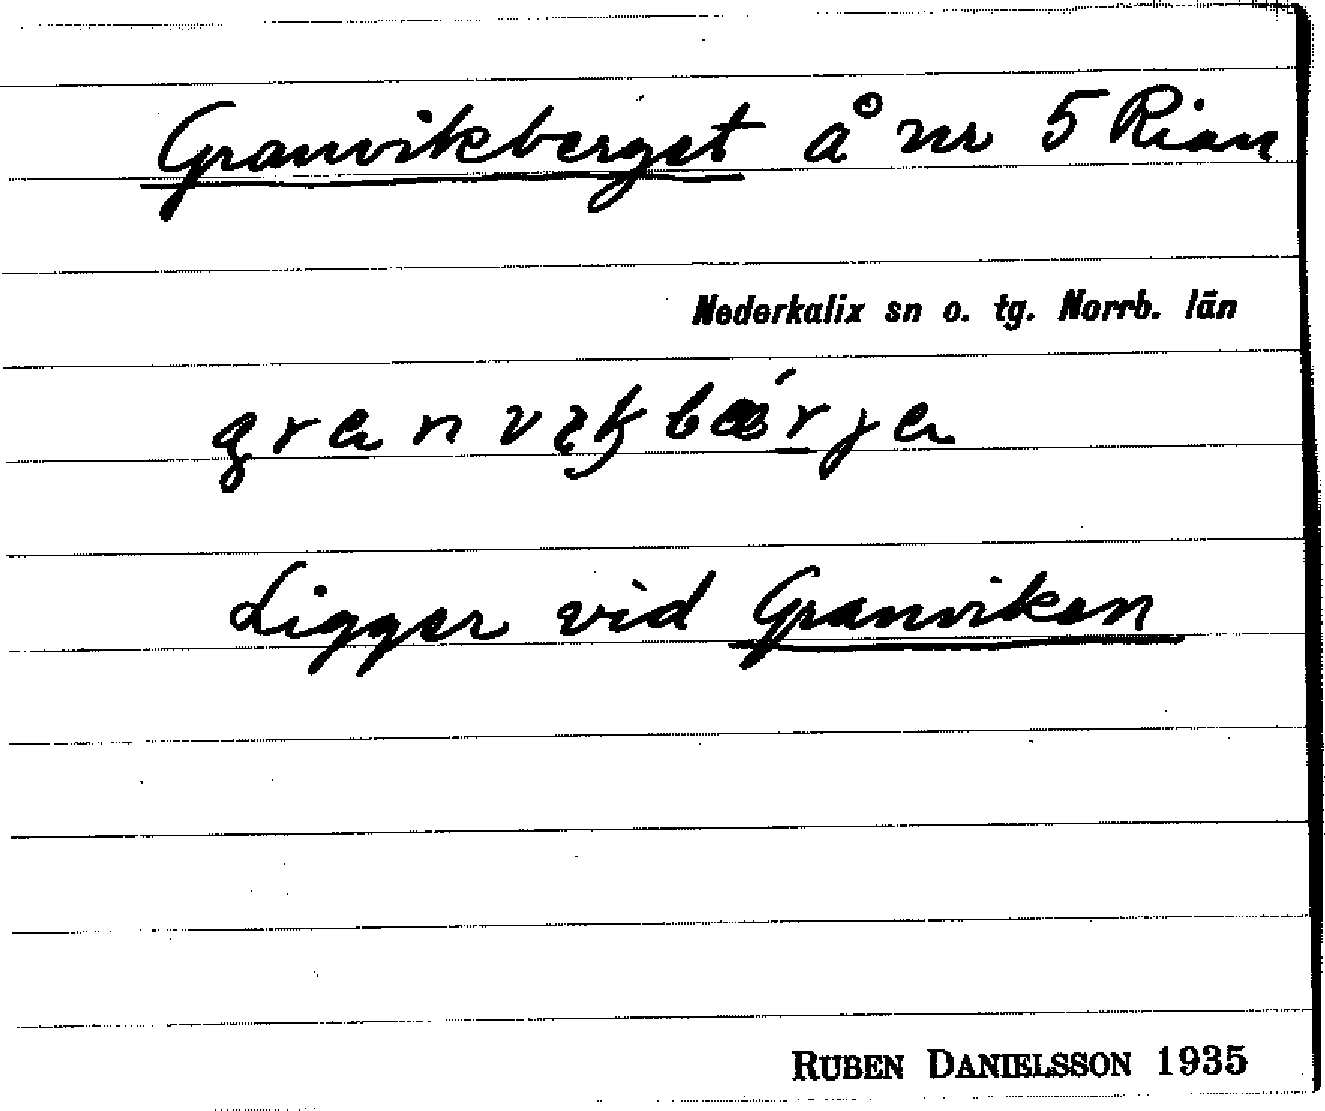 Granvikberget å nr 5 Rian
Nederkalix sn o. tg. Norrb. län
granvikbǽrja
Ligger vid Granviken
RUBEN DANIELSSON 1935